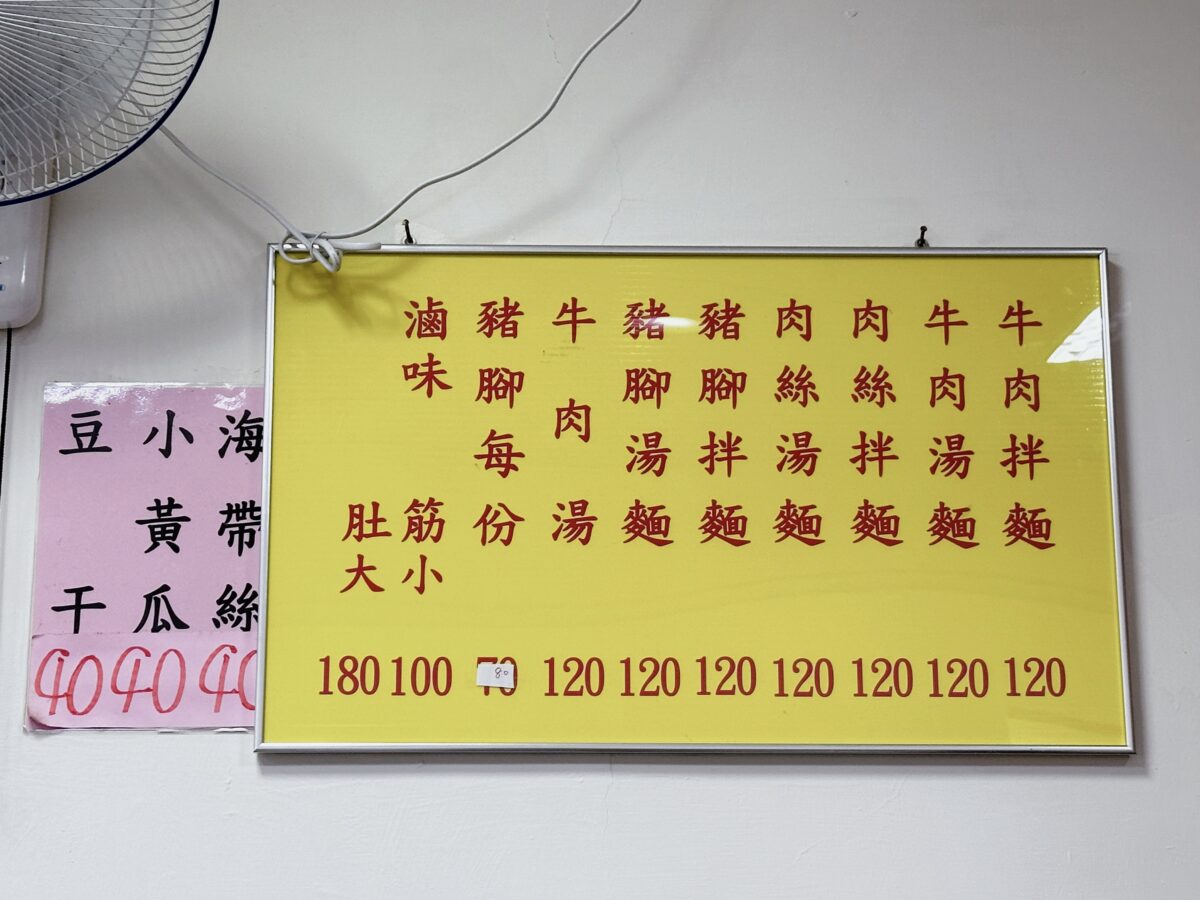 牛肉拌麵 120
牛肉湯麵 120
肉絲拌麵 120
肉絲湯麵 120
豬腳拌麵 120
豬腳湯麵 120
牛肉湯 120
豬腳每份 80
滷味
筋小 100
肚大 180
海帶絲 40
小黃瓜 40
豆干 40